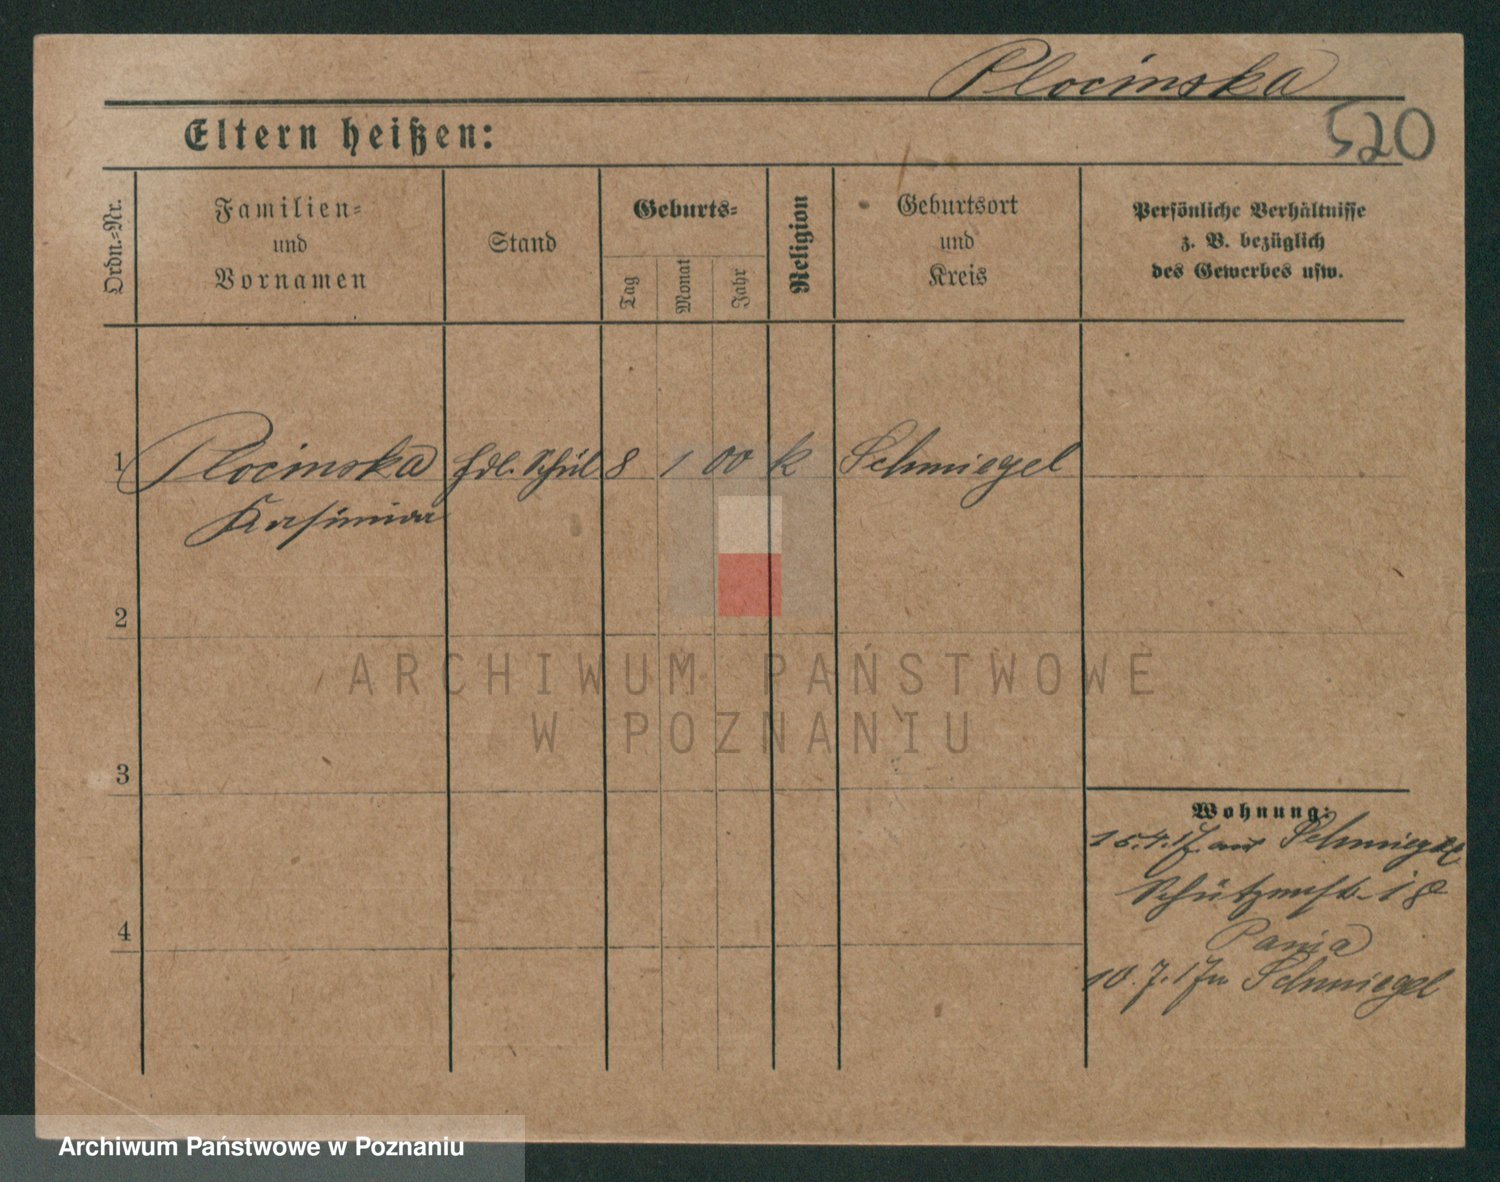 Plocinska
520
Eltern heißen:
Ordn.=Nr.
Familien=
und
Vornamen
Stand
Geburts=
Tag
Monat
Jahr
Religion
Geburtsort
und
Kreis
Persönliche Verhältnisse
z. B. bezüglich
des Gewerbes usw.
1 Plocinska hdl. Schül 8 1 00 k Schmiegel
Kasimira
2
3
4
Wohnung:
15.4.17. aus Schmiegel
Schützenstr. 18
10.7.17 n Schmiegel
ARCHIWUM PAŃSTWOWE
W POZNANIU
Archiwum Państwowe w Poznaniu